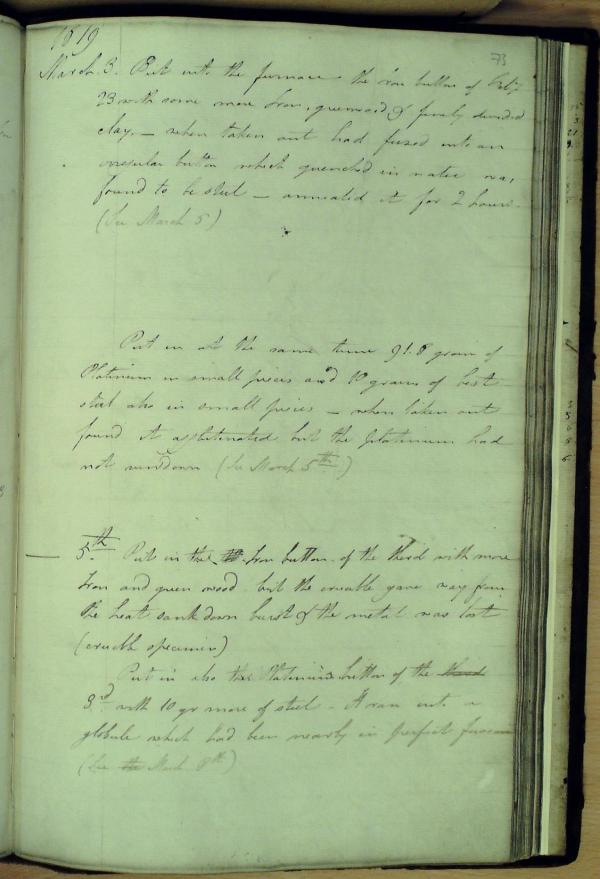 1819
73
March 3. Put into the furnace the Iron button of Feby
23 with some more Iron, greenwood & finely divided
clay. — when taken out had fused into an
irregular button which quenched in water was,
found to be steel — annealed it for 2 hours.
(See March 5)
Put in at the same time 91.8 grain of
Platinum in small pieces and 10 grains of best
steel also in small pieces — when taken out
found it agglutinated but the Platinum had
not run down (See March 5th)
5th. Put in the Iron button of the third with more
Iron and green wood but the crucible gave way from
the heat sank down burst & the metal was lost
(crucible specimen)
Put in also the Platinum button of the third
3rd with 10 gr more of steel - It ran into a
globule which had been nearly in perfect fusion
(See the March 8th)